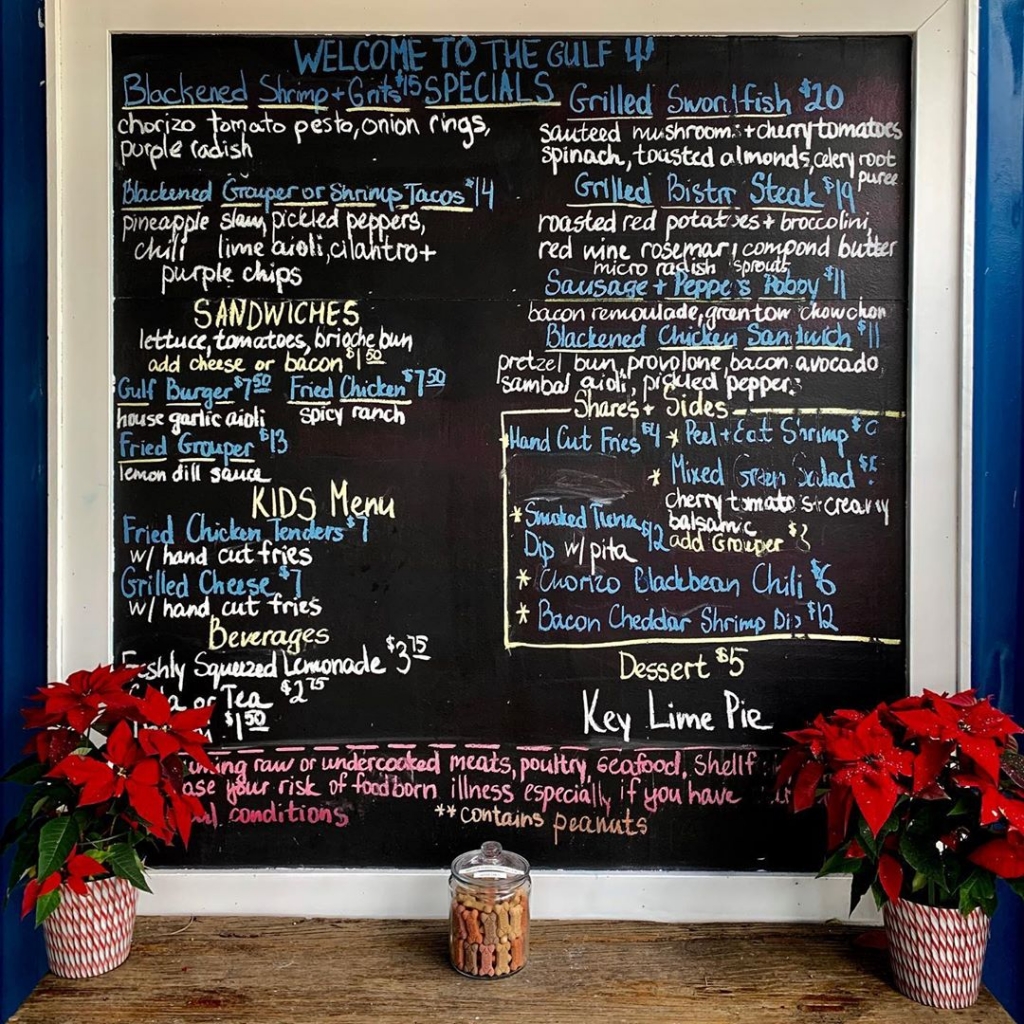 WELCOME TO THE GULF
SPECIALS
Blackened Shrimp + Grits $15
chorizo tomato pesto, onion rings,
purple radish
Blackened Grouper or Shrimp Tacos $14
pineapple slaw, pickled peppers,
chili lime aioli, cilantro +
purple chips
SANDWICHES
lettuce, tomatoes, brioche bun
add cheese or bacon $1 50
Gulf Burger $7 50 Fried Chicken $7 50
house garlic aioli spicy ranch
Fried Grouper $13
lemon dill sauce
KIDS Menu
Fried Chicken Tenders $7
w/ hand cut fries
Grilled Cheese $7
w/ hand cut fries
Beverages
Squeezed Lemonade $3 75
or Tea $2 75
$1 50
Grilled Swordfish $20
sauteed mushroom + cherry tomatoes
spinach, toasted almonds, celery root
puree
Grilled Bistr Steak $19
roasted red potatoes + broccolini,
red wine rosemary compond butter
micro radish sprouts
Sausage + Peppe s Poboy $11
bacon remoulade, green tom chow chow
Blackened Chicken Sandwich $11
pretzel bun, provolone, bacon avocado
sambal aioli, pickled pepper
Shares + Sides
Hand Cut Fries $4 * Peel + Eat Shrimp
* Mixed Green Salad
cherry tomato s + creamy
balsamic
add Grouper $3
* Smoked Tuna $12
Dip w/ pita
* Chorizo Blackbean Chili $6
* Bacon Cheddar Shrimp Dip $12
Dessert $5
Key Lime Pie
raw or undercooked meats, poultry, seafood, Shellf
your risk of foodborn illness especially if you have
conditions
**contains peanuts